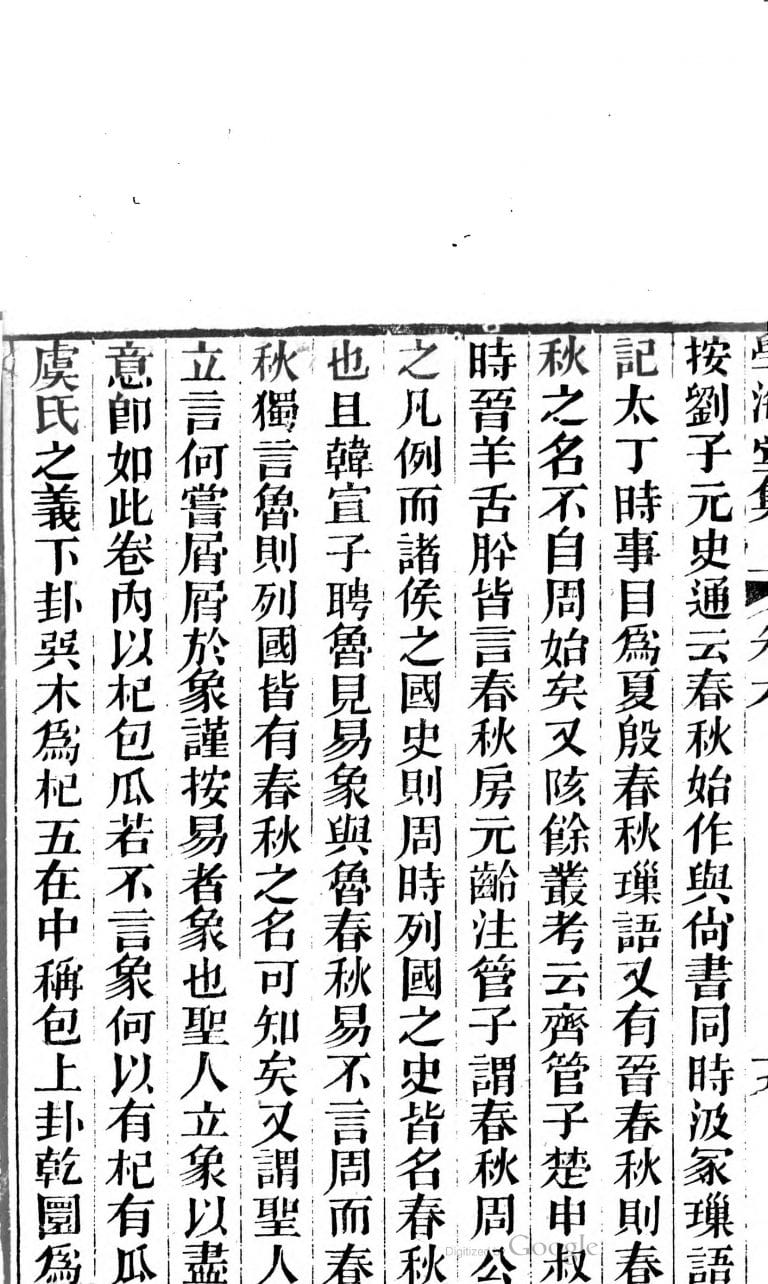 學海堂集
按劉子元史通云春秋始作與尙書同時汲冢璅語
記太丁時事目爲夏殷春秋璅語又有晉春秋則春
秋之名不自周始矣又陔餘叢考云齊管子楚申叔
時晉羊舌肸皆言春秋房元齡注管子謂春秋周公
之凡例而諸侯之國史則周時列國之史皆名春秋
也且韓宣子聘魯見易象與魯春秋易不言周而春
秋獨言魯則列國皆有春秋之名可知矣又謂聖人
立言何嘗屑屑於象謹按易者象也聖人立象以盡
意卽如此卷內以杞包瓜若不言象何以有杞有瓜
虞氏之義下卦巽木爲杞五在中稱包上卦乾圜爲
Digitized by Google